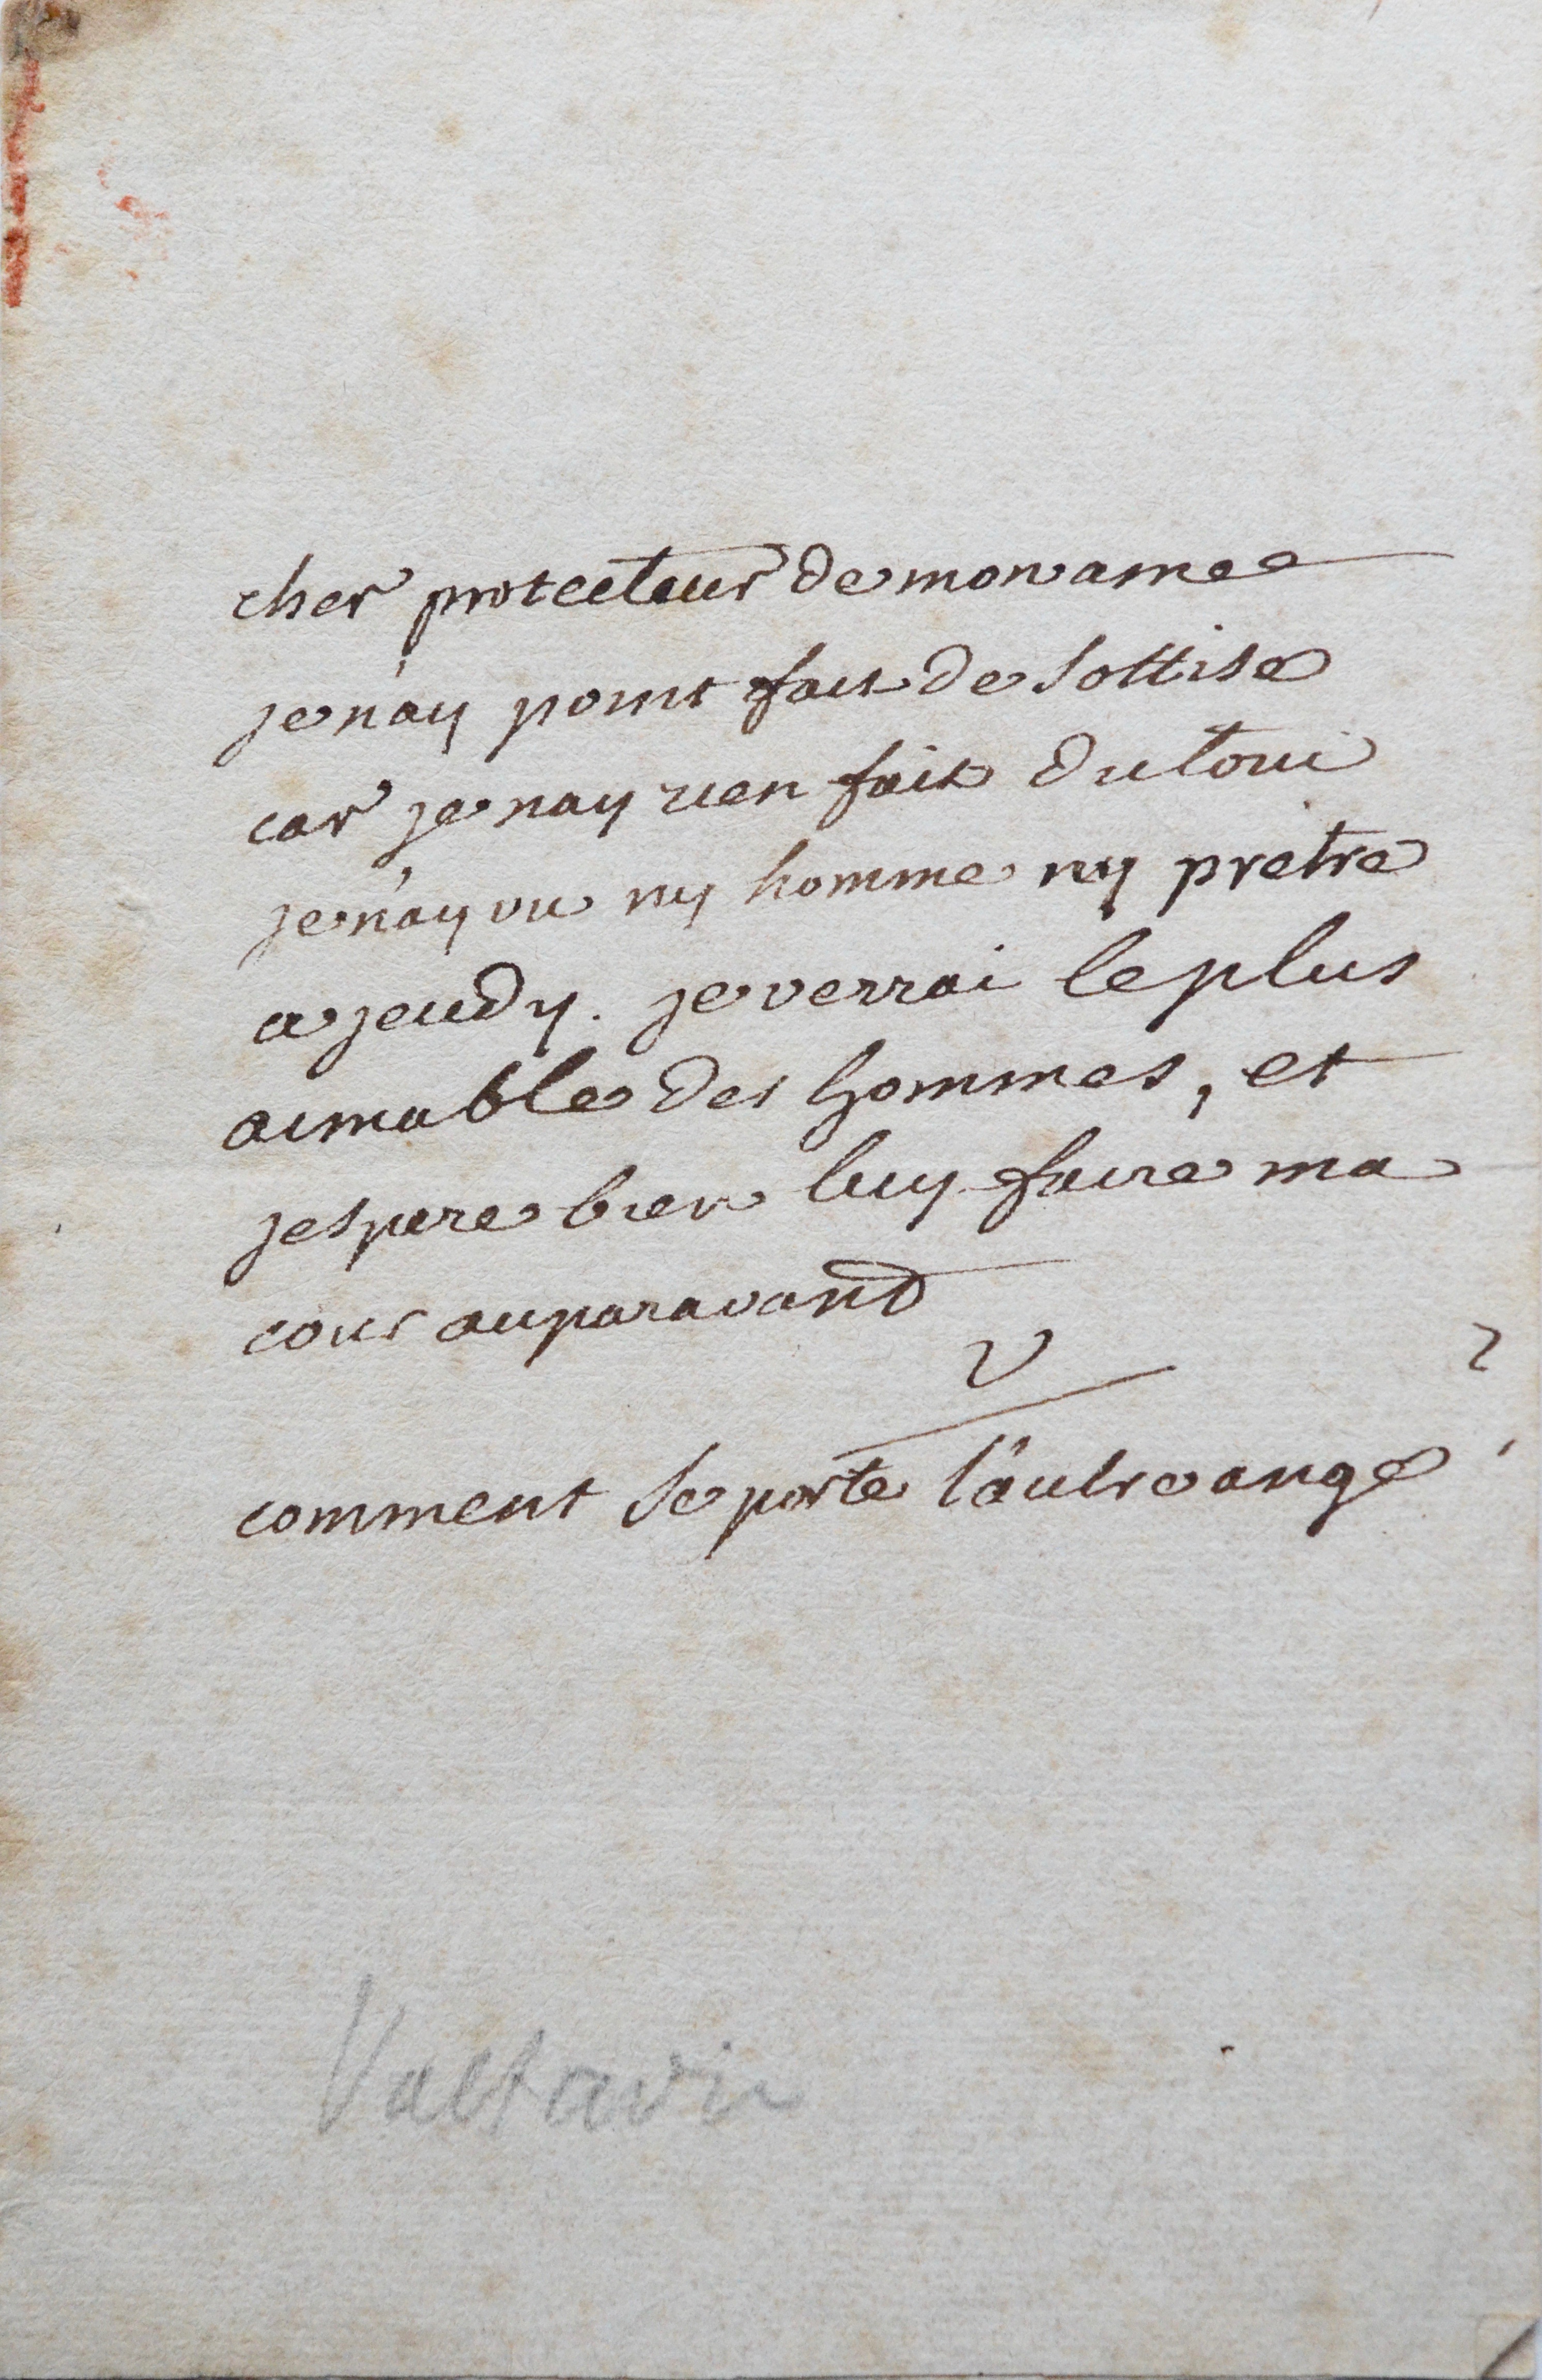 cher protecteur de mon ame
je n'ay point fait de sottise
car je nay rien fait du tout
je n'ay vu ny homme ny pretre
a jeudy. je verrai le plus
aimable des hommes, et
jespere bien luy faire ma
cour auparavand
V
comment se porte l'autre ange ?